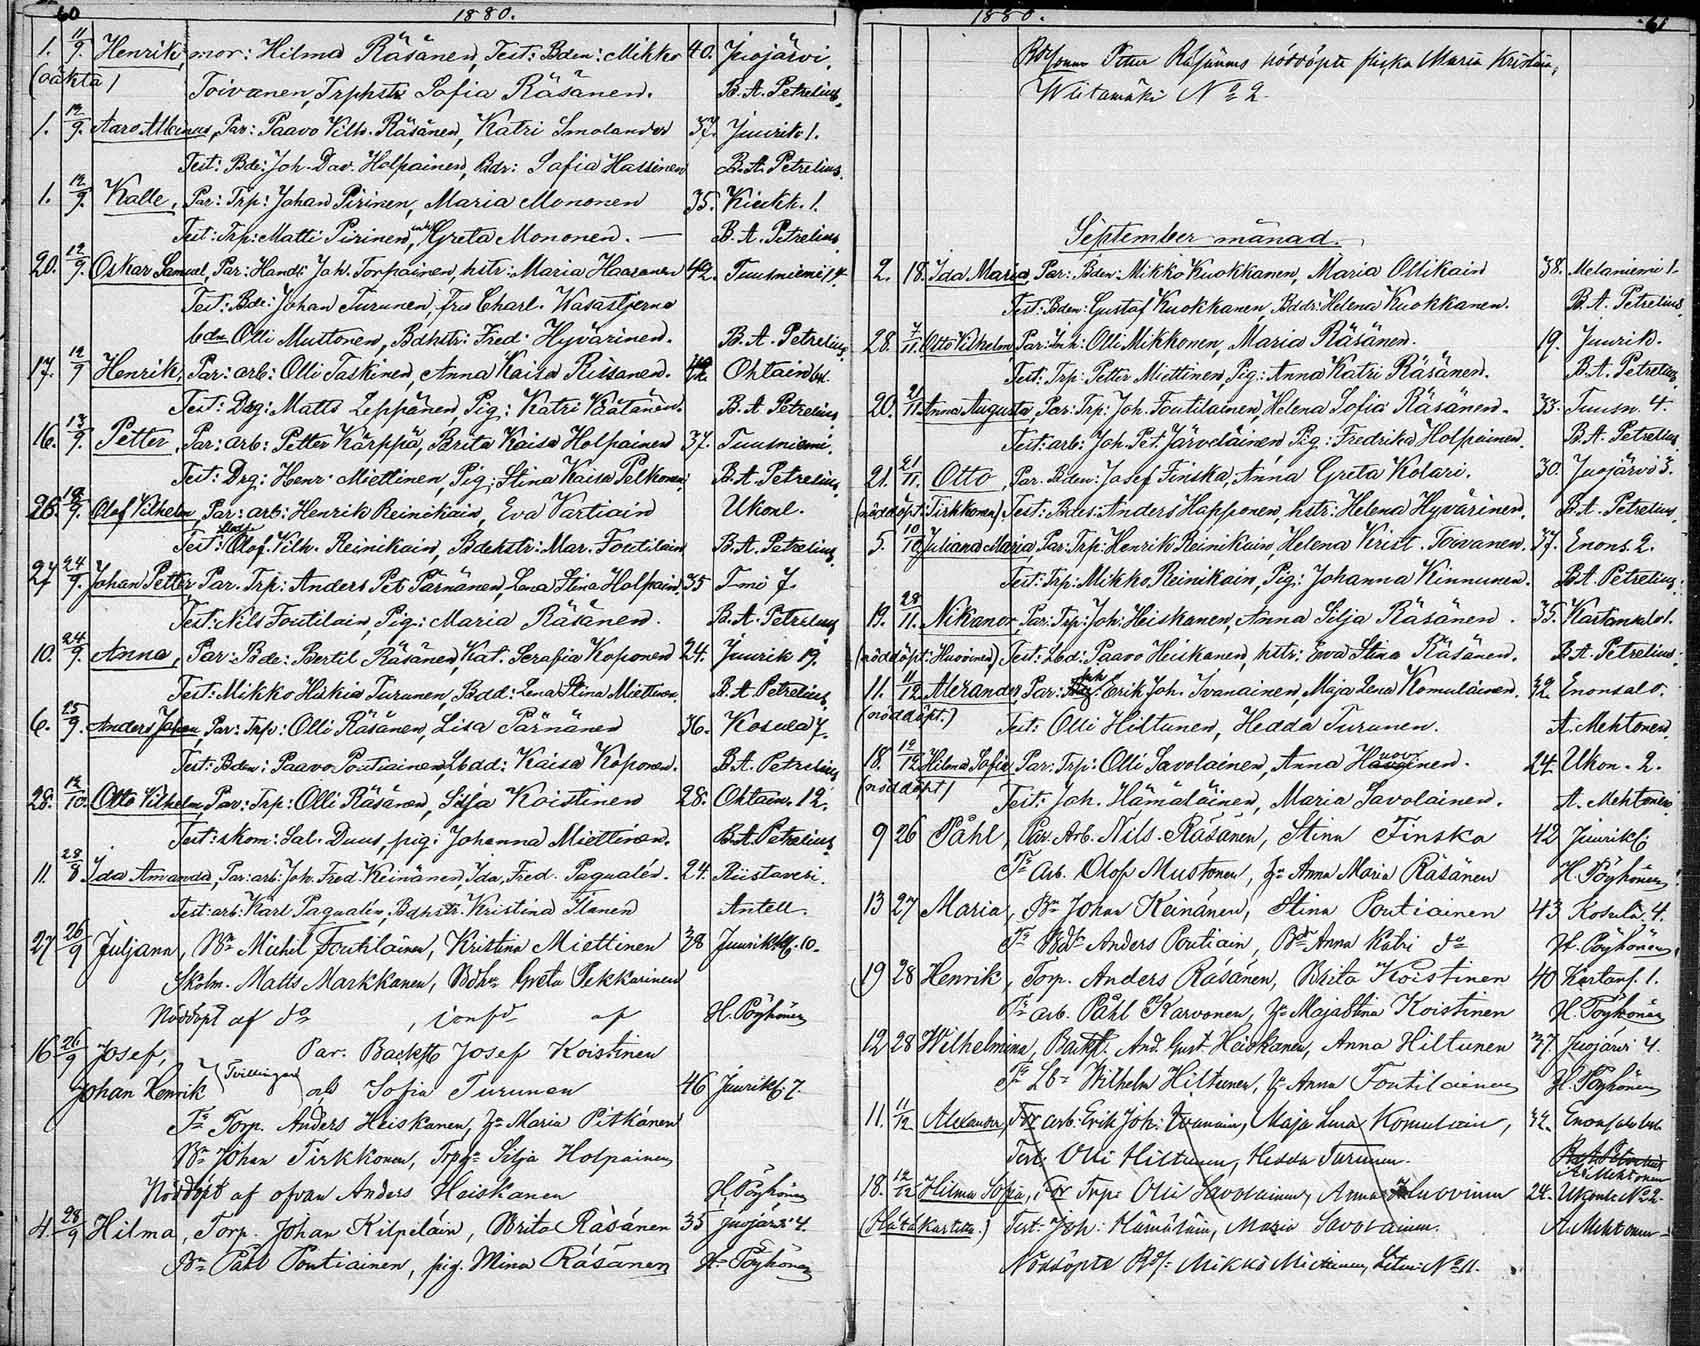 60
1880.
1. 11/9. Henrik, mor: Hilma Räsänen, Test: Bden: Mikko 40. Juojärvi.
(oäkta) Toivanen, Trphstr Sofia Räsänen. B. A. Petrelius.
1. 12/9. Aaro Albinus, Par: Paavo Vilh. Räsänen, Katri Smolander 37. Juurik 1.
Test: Bde: Joh. Dav. Holpainen, Bdr: Sofia Hassinen B. A. Petrelius.
1. 12/9. Kalle, Par: Trp: Johan Pirinen, Maria Mononen 35. Kiukk. 1.
Test: Trp: Matti Pirinen, Greta Mononen. — B. A. Petrelius.
20. 12/9. Oskar Samuel, Par: Handl: Joh. Torpainen, hstr: Maria Haasonen 42. Tuusniemi 14.
Test: Bde: Johan Turunen, fru Charl. Wasastjerna
bdn Olli Mustonen, Bdhstr: Fred: Hyvärinen. B. A. Petrelius.
17. 12/9 Henrik, Par: arb: Olli Taskinen, Anna Kaisa Rissanen. 42. Ohtain
Test: Drg: Matts Leppänen, Pig: Katri Väätänen. B. A. Petrelius.
16. 13/9. Petter, Par: arb: Petter Kärppä, Brita Kaisa Holpainen 37. Tuusniemi.
Test: Drg: Henr. Miettinen, Pig: Stina Kaisa Pelkonen, B. A. Petrelius.
26. 18/9. Olof Vilhelm, Par: arb: Henrik Reinikain, Eva Vartiain Ukonl.
Test: Olof Vilh. Reinikain, Bdehstr: Mar. Foutilain B. A. Petrelius.
27 24/9. Johan Petter, Par: Trp: Anders Pet. Pärnänen, Lena Stina Holpain. 35 Tmi 7.
Test: Nils Foutilain, Pig: Maria Räsänen. B. A. Petrelius.
10. 24/9. Anna, Par: Bde: Bertil Räsänen, Kat. Serafia Koponen 24. Juurik 19.
Test: Mikko Hiskias Turunen, Bdd: Lena Stina Miettinen. B. A. Petrelius.
6. 25/9. Anders Johan, Par: Trp: Olli Räsänen, Lisa Pärnänen 36. Kosula 7.
Test: Bden: Paavo Poutiainen, Lbdd: Kaisa Koponen. B. A. Petrelius.
28. 12/10. Otto Vilhelm, Par: Trp: Olli Räsänen, Silja Koistinen 28. Ohtain. 12.
Test: skom: Sal. Duus, pig: Johanna Miettinen. B. A. Petrelius.
11. 28/8 Ida Amanda, Par: arb: Joh. Fred. Keinänen, Ida, Fred. Pagualén. 24. Riistavesi.
Test: arb: Karl Pagualén, Bdhstr: Kristina Ilanen Antell.
27 26/9 Juljana, Bn Michel Foutilainen, Kristina Miettinen 38 Juurikk. 10.
Skolm. Matts Markkanen, Bdhr Greta Pekkarinen
Nöddöpt af do, confd af H. Pöyhönen
16 26/9 Josef, Par. Backst Josef Koistinen
Johan Henrik } Tvillingar och Sofia Turunen 46 Juurikk 7.
Fr Torp. Anders Heiskanen, Hu Maria Pitkänen
Bn Johan Tirkkonen, Torpdr Silja Holpainen
Nöddöpt af ofvan Anders Heiskanen H. Pöyhönen
4. 28/9 Hilma, Torp. Johan Kilpeläin, Brita Räsänen 35 Juojärvi 4.
Bn Påhl Poutiainen, pig. Mina Räsänen H. Pöyhönen
1880. 61
Petter Räsänens nöddöpte flicka Maria Kristina,
Wiitamäki No 2
September månad.
2. 18. Ida Maria, Par: Bden: Mikko Kuokkanen, Maria Ollikain 38. Melaniemi 1.
Test: Bden: Gustaf Kuokkanen, Bddr: Helena Kuokkanen. B. A. Petrelius.
28. 7/11. Otto Vilhelm, Par: Inh: Olli Mikkonen, Maria Räsänen. 19. Juurik.
Test: Trp: Petter Miettinen, Pig: Anna Katri Räsänen. B. A. Petrelius.
20. 21/11. Anna Augusta, Par: Trp: Joh. Foutilainen, Helena Sofia Räsänen. 33. Tuusn. 4.
Test: arb: Joh. Pet. Järveläinen, Pig: Fredrika Holpainen. B. A. Petrelius.
21. 21/11. Otto, Par. Bden: Josef Finska, Anna Greta Kolari. 30. Juojärvi 3.
(nöddöpt: Tirkkonen) Test: Bdns: Anders Happonen, hstr: Helena Hyvärinen. B. A. Petrelius.
5. 10/10 Juliana Maria, Par: Trp: Henrik Reinikain, Helena Krist. Toivanen. 37. Enons. 2.
Test: Trp: Mikko Reinikain, Pig: Johanna Kinnunen. B. A. Petrelius.
19. 28/11. Nikanor, Par: Trp: Joh: Heiskanen, Anna Silja Räsänen. 35. Kartansalo 1.
(nöddöpt: Huovinen) Test: Lbd: Paavo Heiskanen, hstr: Eva Stina Räsänen. B. A. Petrelius.
11. 11/12 Alexander, Par: Inh Erik Joh. Ivanainen, Maja Lena Komulainen. 32. Enonsalo.
(nöddöpt.) Test: Olli Hiltunen, Hedda Turunen. A. Mehtonen.
18. 12/12 Hilma Sofia, Par: Trp: Olli Savolainen, Anna Huovinen. 24. Ukon. 2.
(nöddöpt) Test: Joh. Hämäläinen, Maria Savolainen. A. Mehtonen.
9 26 Påhl, Par. Arb. Nils Räsänen, Stina Finska 42 Juurikk
Fr Arb. Olof Mustonen, Hu Anna Maria Räsänen H. Pöyhönen
13 27 Maria, Bn Johan Keinänen, Stina Poutiainen 43 Kosula 4.
Fr Anders Poutiain, Bdr Anna Katri do H. Pöyhönen
19 28 Henrik, Torp. Anders Räsänen, Brita Koistinen 40 Kartans. 1.
Fr arb. Påhl Karvonen, Hu Maja Stina Koistinen H. Pöyhönen
12 28 Wilhelmina, Backst. And. Gust. Heiskanen, Anna Hiltunen 37 Juojärvi 4.
Fr Lbn Wilhelm Hiltunen, Hu Anna Foutilainen H. Pöyhönen
11. 11/12 Alexander, Par arb: Erik Joh: Ivanain, Maja Lena Komulain, 32. Enonsalo
Test: Olli Hiltunen, Hedda Turunen. A. Mehtonen
18. 12/12 Hilma Sofia, Par Trp: Olli Savolainen, Anna Huovinen 24. Ukonl. No 2.
Test: Joh: Hämäläin, Maria Savolainen. A. Mehtonen
Nöddöpte Mikko Miettinen, No 11.